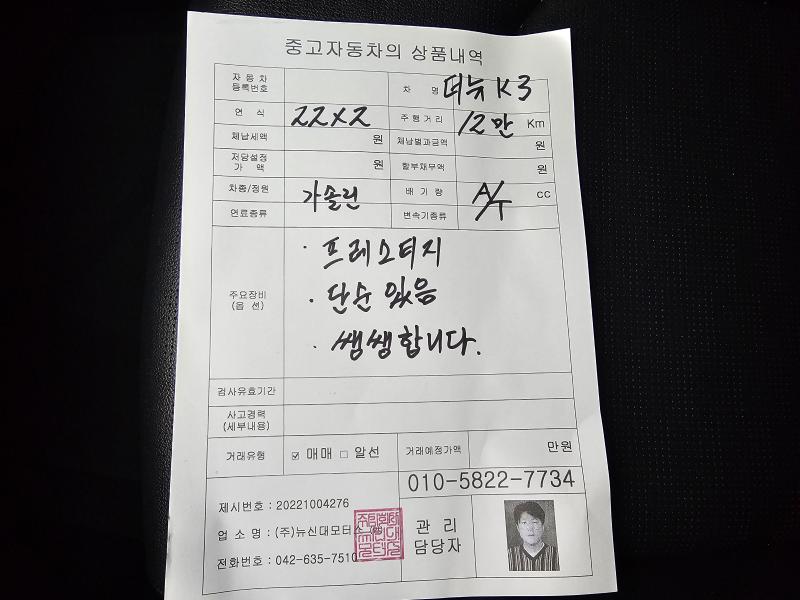 중고자동차의 상품내역
자 동 차
등록번호
차 명 더뉴 K3
연 식 22X2 주 행 거 리 12만 Km
체납세액 원 체납벌과금액 원
저당설정
가 액 원 할부채무액 원
차종/정원 가솔린 배 기 량 A/T cc
연료종류 변속기종류
주요장비
(옵 션)
· 프레스티지
· 단순 있음
· 쌩쌩합니다.
검사유효기간
사고경력
(세부내용)
거래유형 ☑ 매매 □ 알선 거래예정가액 만원
010-5822-7734
제시번호 : 20221004276
업 소 명 : (주)뉴신대모터스
전화번호 : 042-635-7510
관 리
담당자